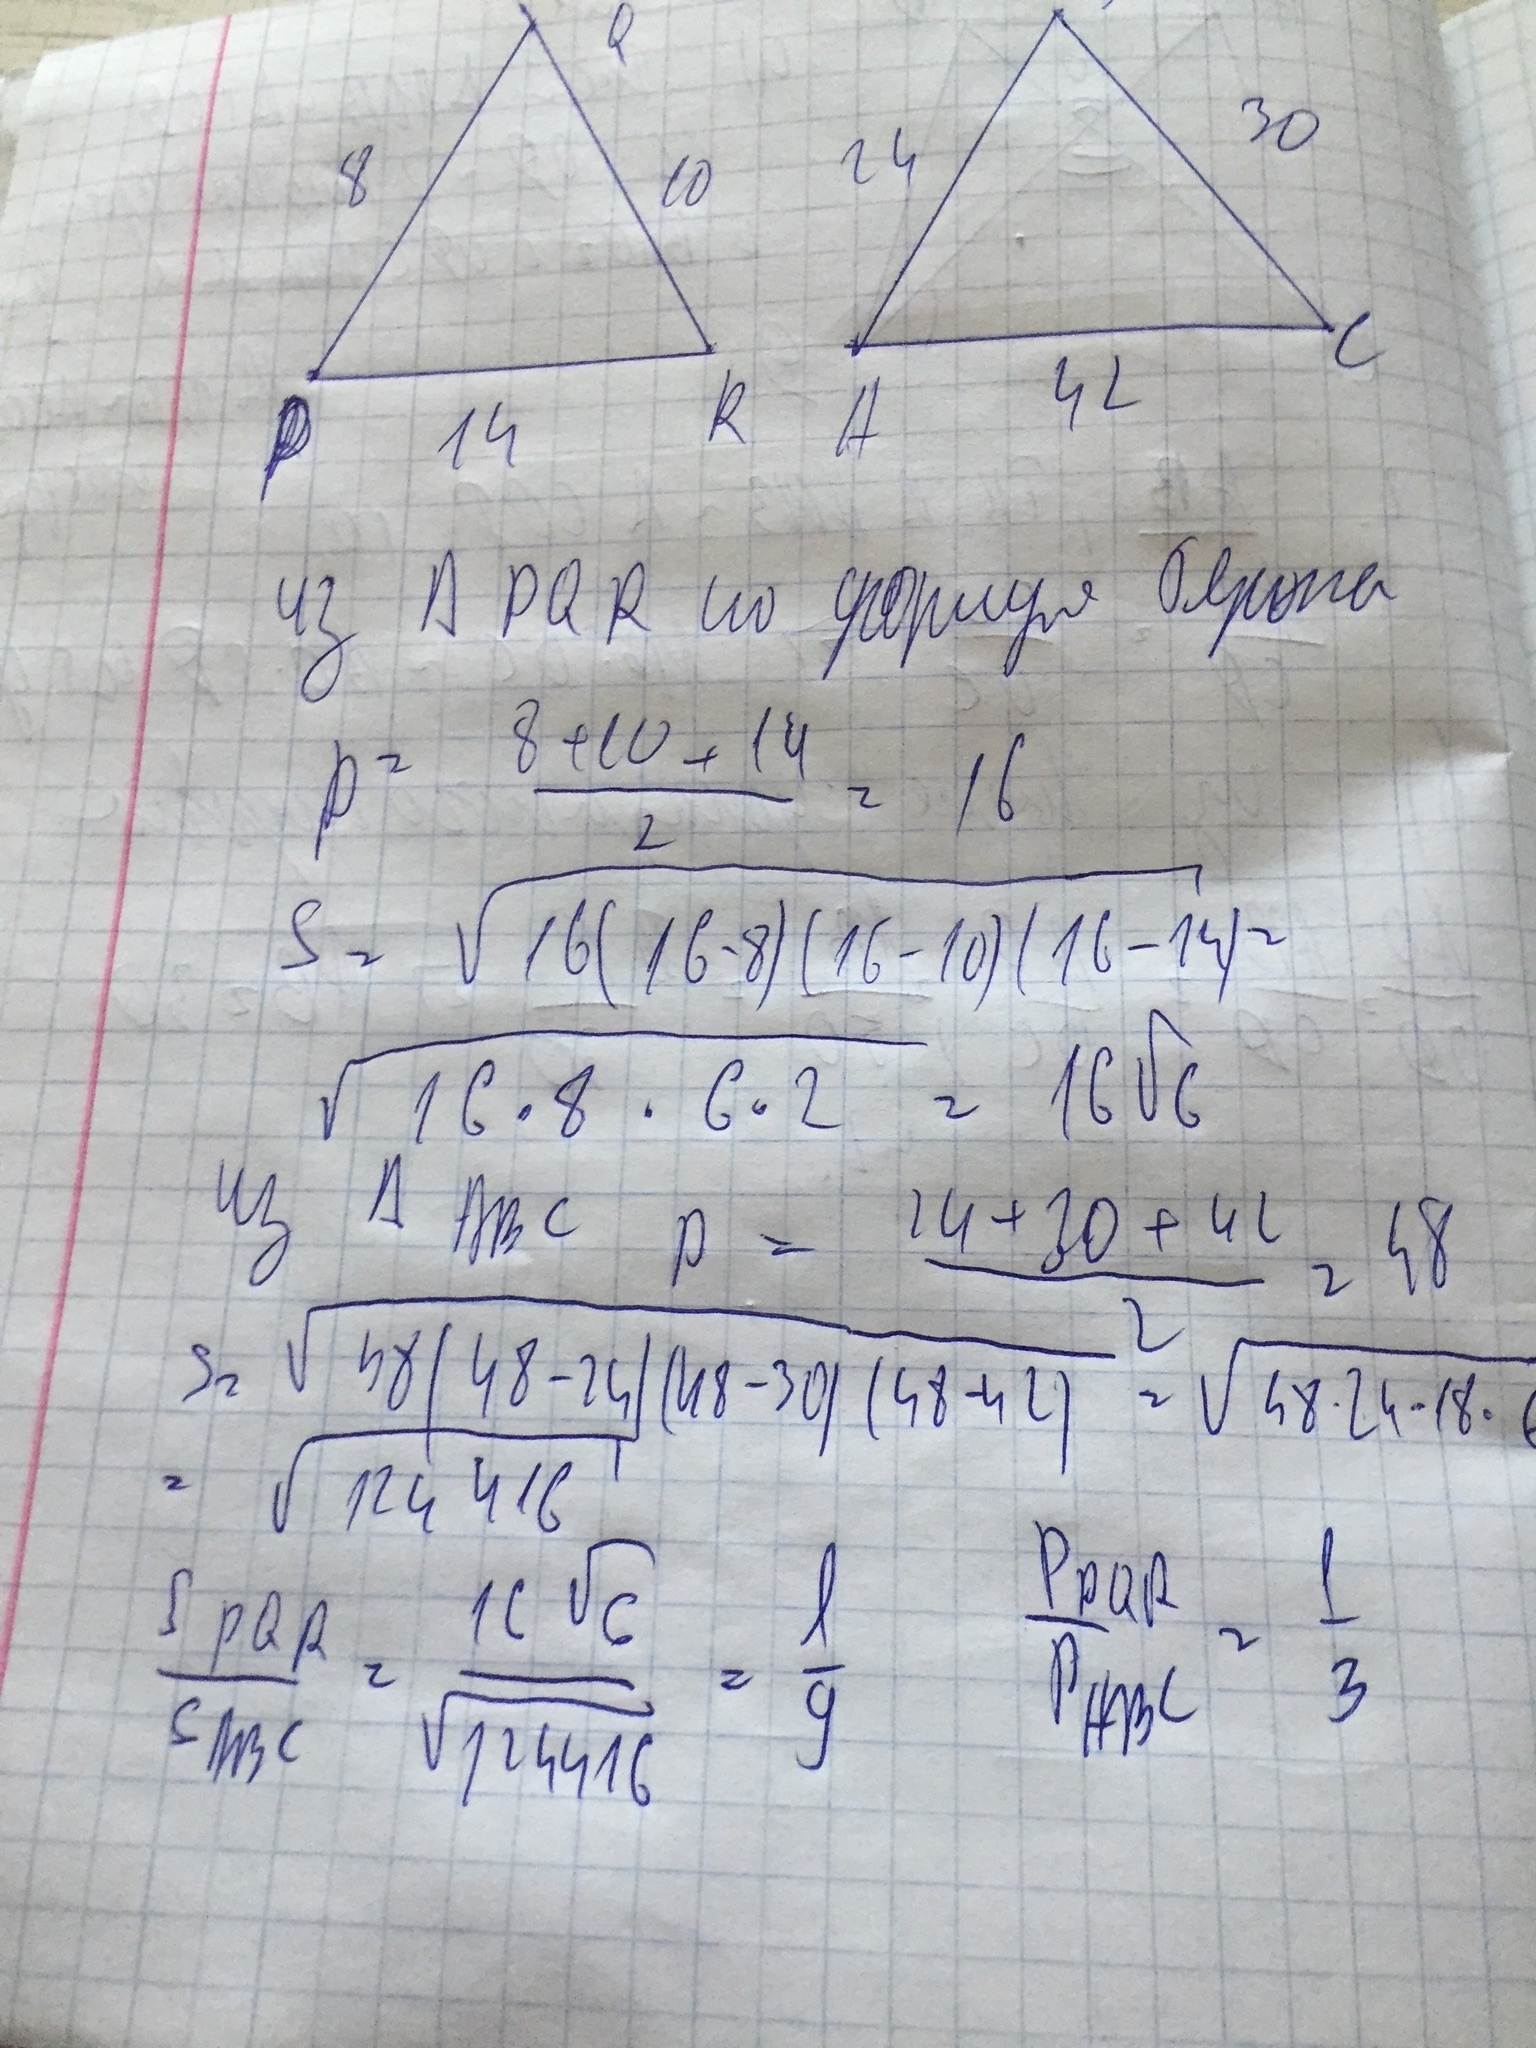 Q
8 10 24 30
P 14 R A 42 C
из Δ PQR по формуле Герона
p = 8+10+14 / 2 = 16
S = √16(16-8)(16-10)(16-14) =
√16·8·6·2 = 16√6
из Δ ABC p = 24+30+42 / 2 = 48
S = √48(48-24)(48-30)(48-42) = √48·24·18·6
= √124 416
S PQR / S ABC = 16√6 / √124416 = 1/9 P PQR / P ABC = 1/3